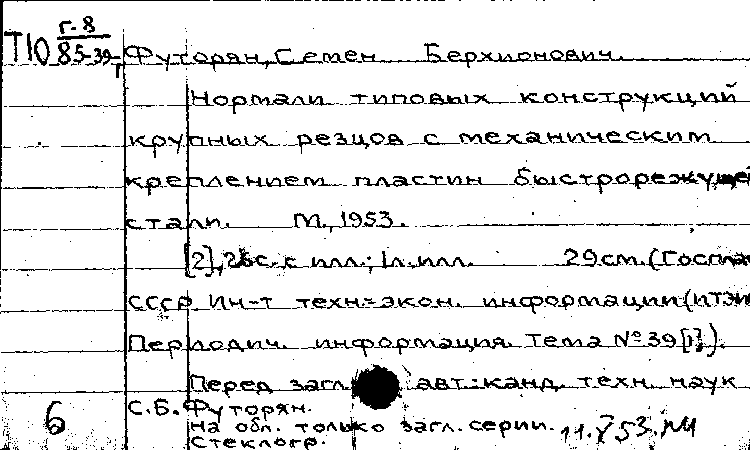 Т10 г-8
85-39
1
Футорян, Семен Берхионович.
Нормали типовых конструкций
крупных резцов с механическим
креплением пластин быстрорежущей
стали. М., 1953.
[2], 26с. с илл.; 1л. илл. 29см. (Госплан
СССР. Ин-т техн=экон. информации (ИТЭИ
Периодич. информация. Тема № 39 [1]).
Перед загл. авт.: канд. техн. наук
С.Б. Футорян.
На обл. только загл. серии.
Стеклогр.
6
11.V 53.